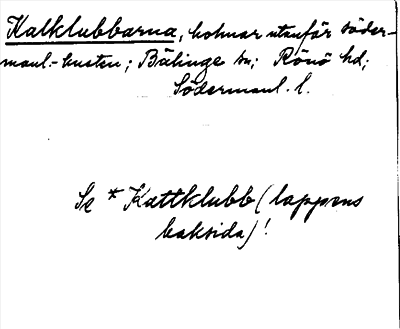 Kalklubbarna, holmar utanför söder-
manl.-kusten; Bälinge sn; Rönö hd;
Södermanl. l.
Se * Kattklubb (lappens
baksida)!